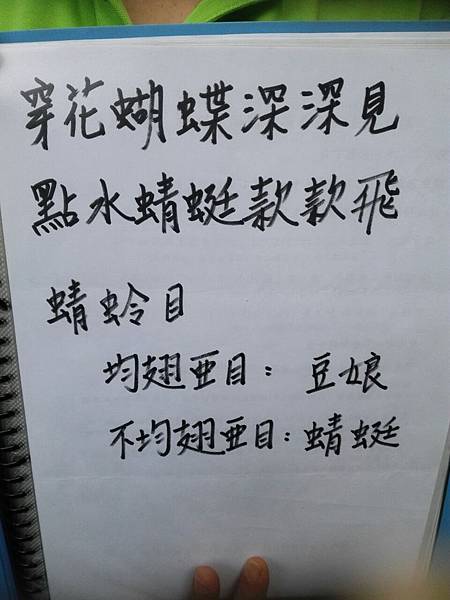 穿花蝴蝶深深見
點水蜻蜓款款飛
蜻蛉目
均翅亞目：豆娘
不均翅亞目：蜻蜓